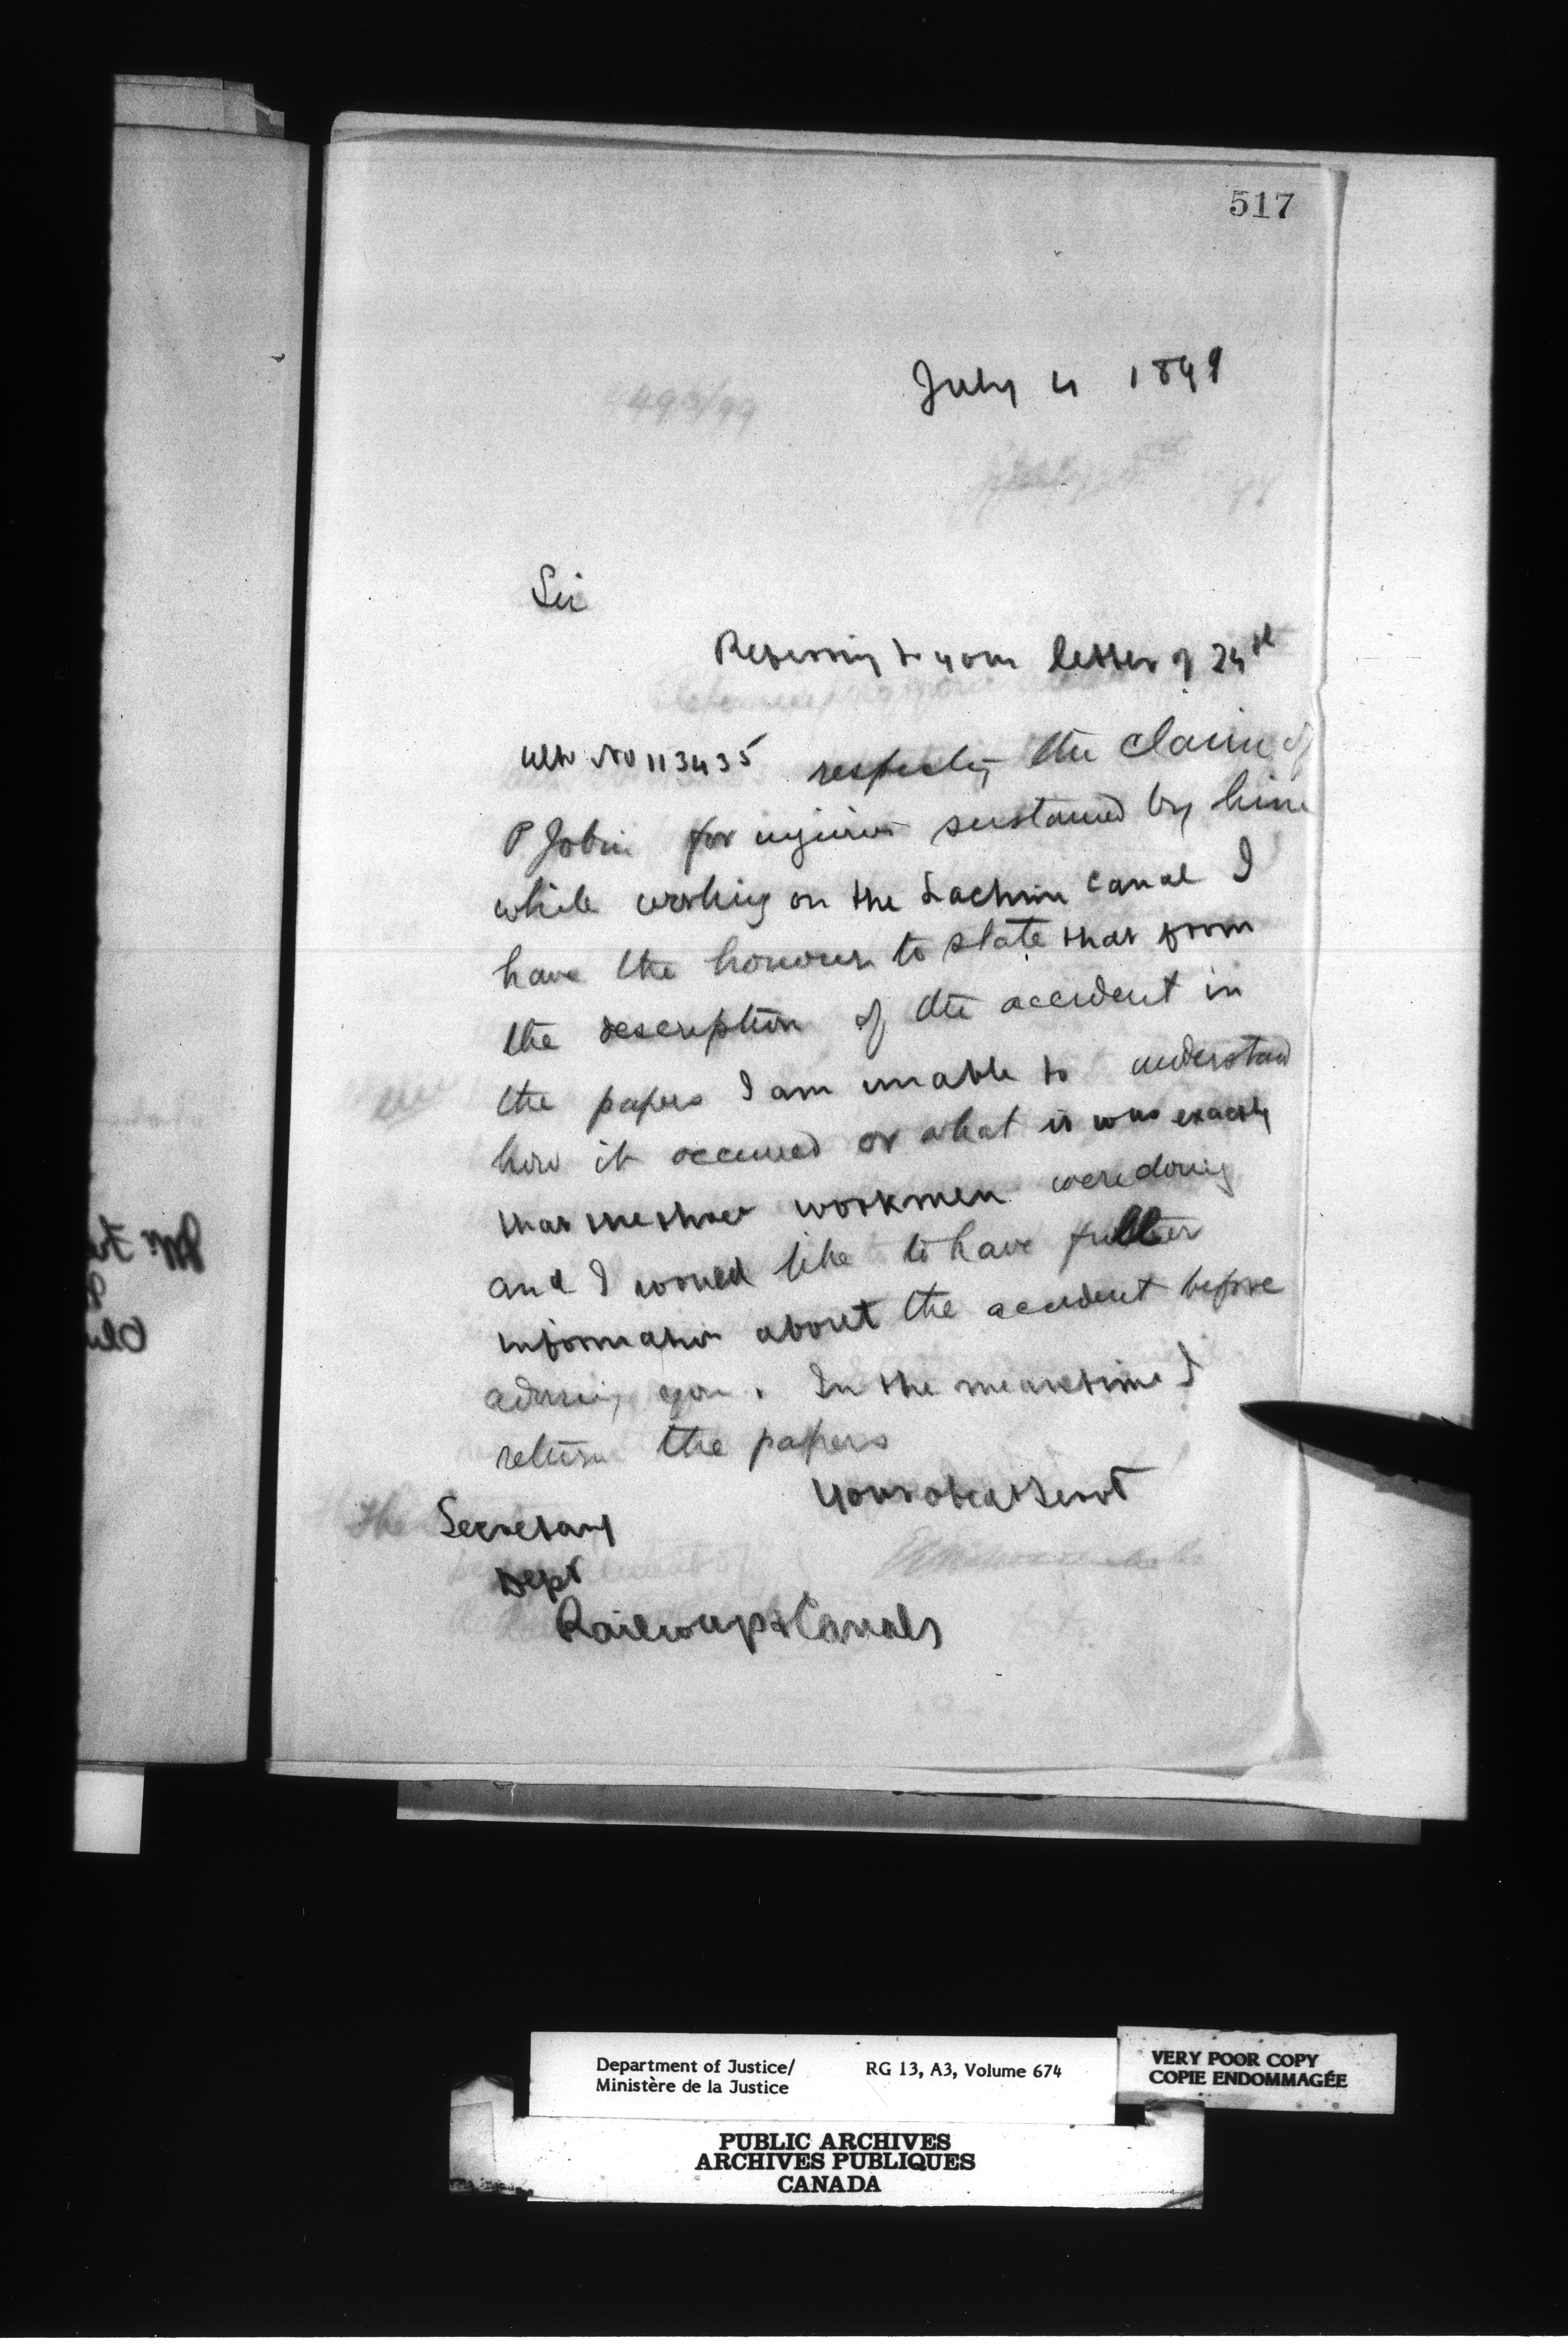 517
July 4 1899
Sir
Referring to your letter of 24th
ulto No 113435 respecting the claim of
P Jobin for injuries sustained by him
while working on the Lachine Canal I
have the honour to state that from
the description of the accident in
the papers I am unable to understand
how it occurred or what it was exactly
that the workmen were doing
and I would like to have fuller
information about the accident before
advising you. In the meantime I
return the papers
Your obedt Servt
The Secretary
Dept
Railways & Canals
Department of Justice/
Ministère de la Justice
RG 13, A3, Volume 674
VERY POOR COPY
COPIE ENDOMMAGÉE
PUBLIC ARCHIVES
ARCHIVES PUBLIQUES
CANADA